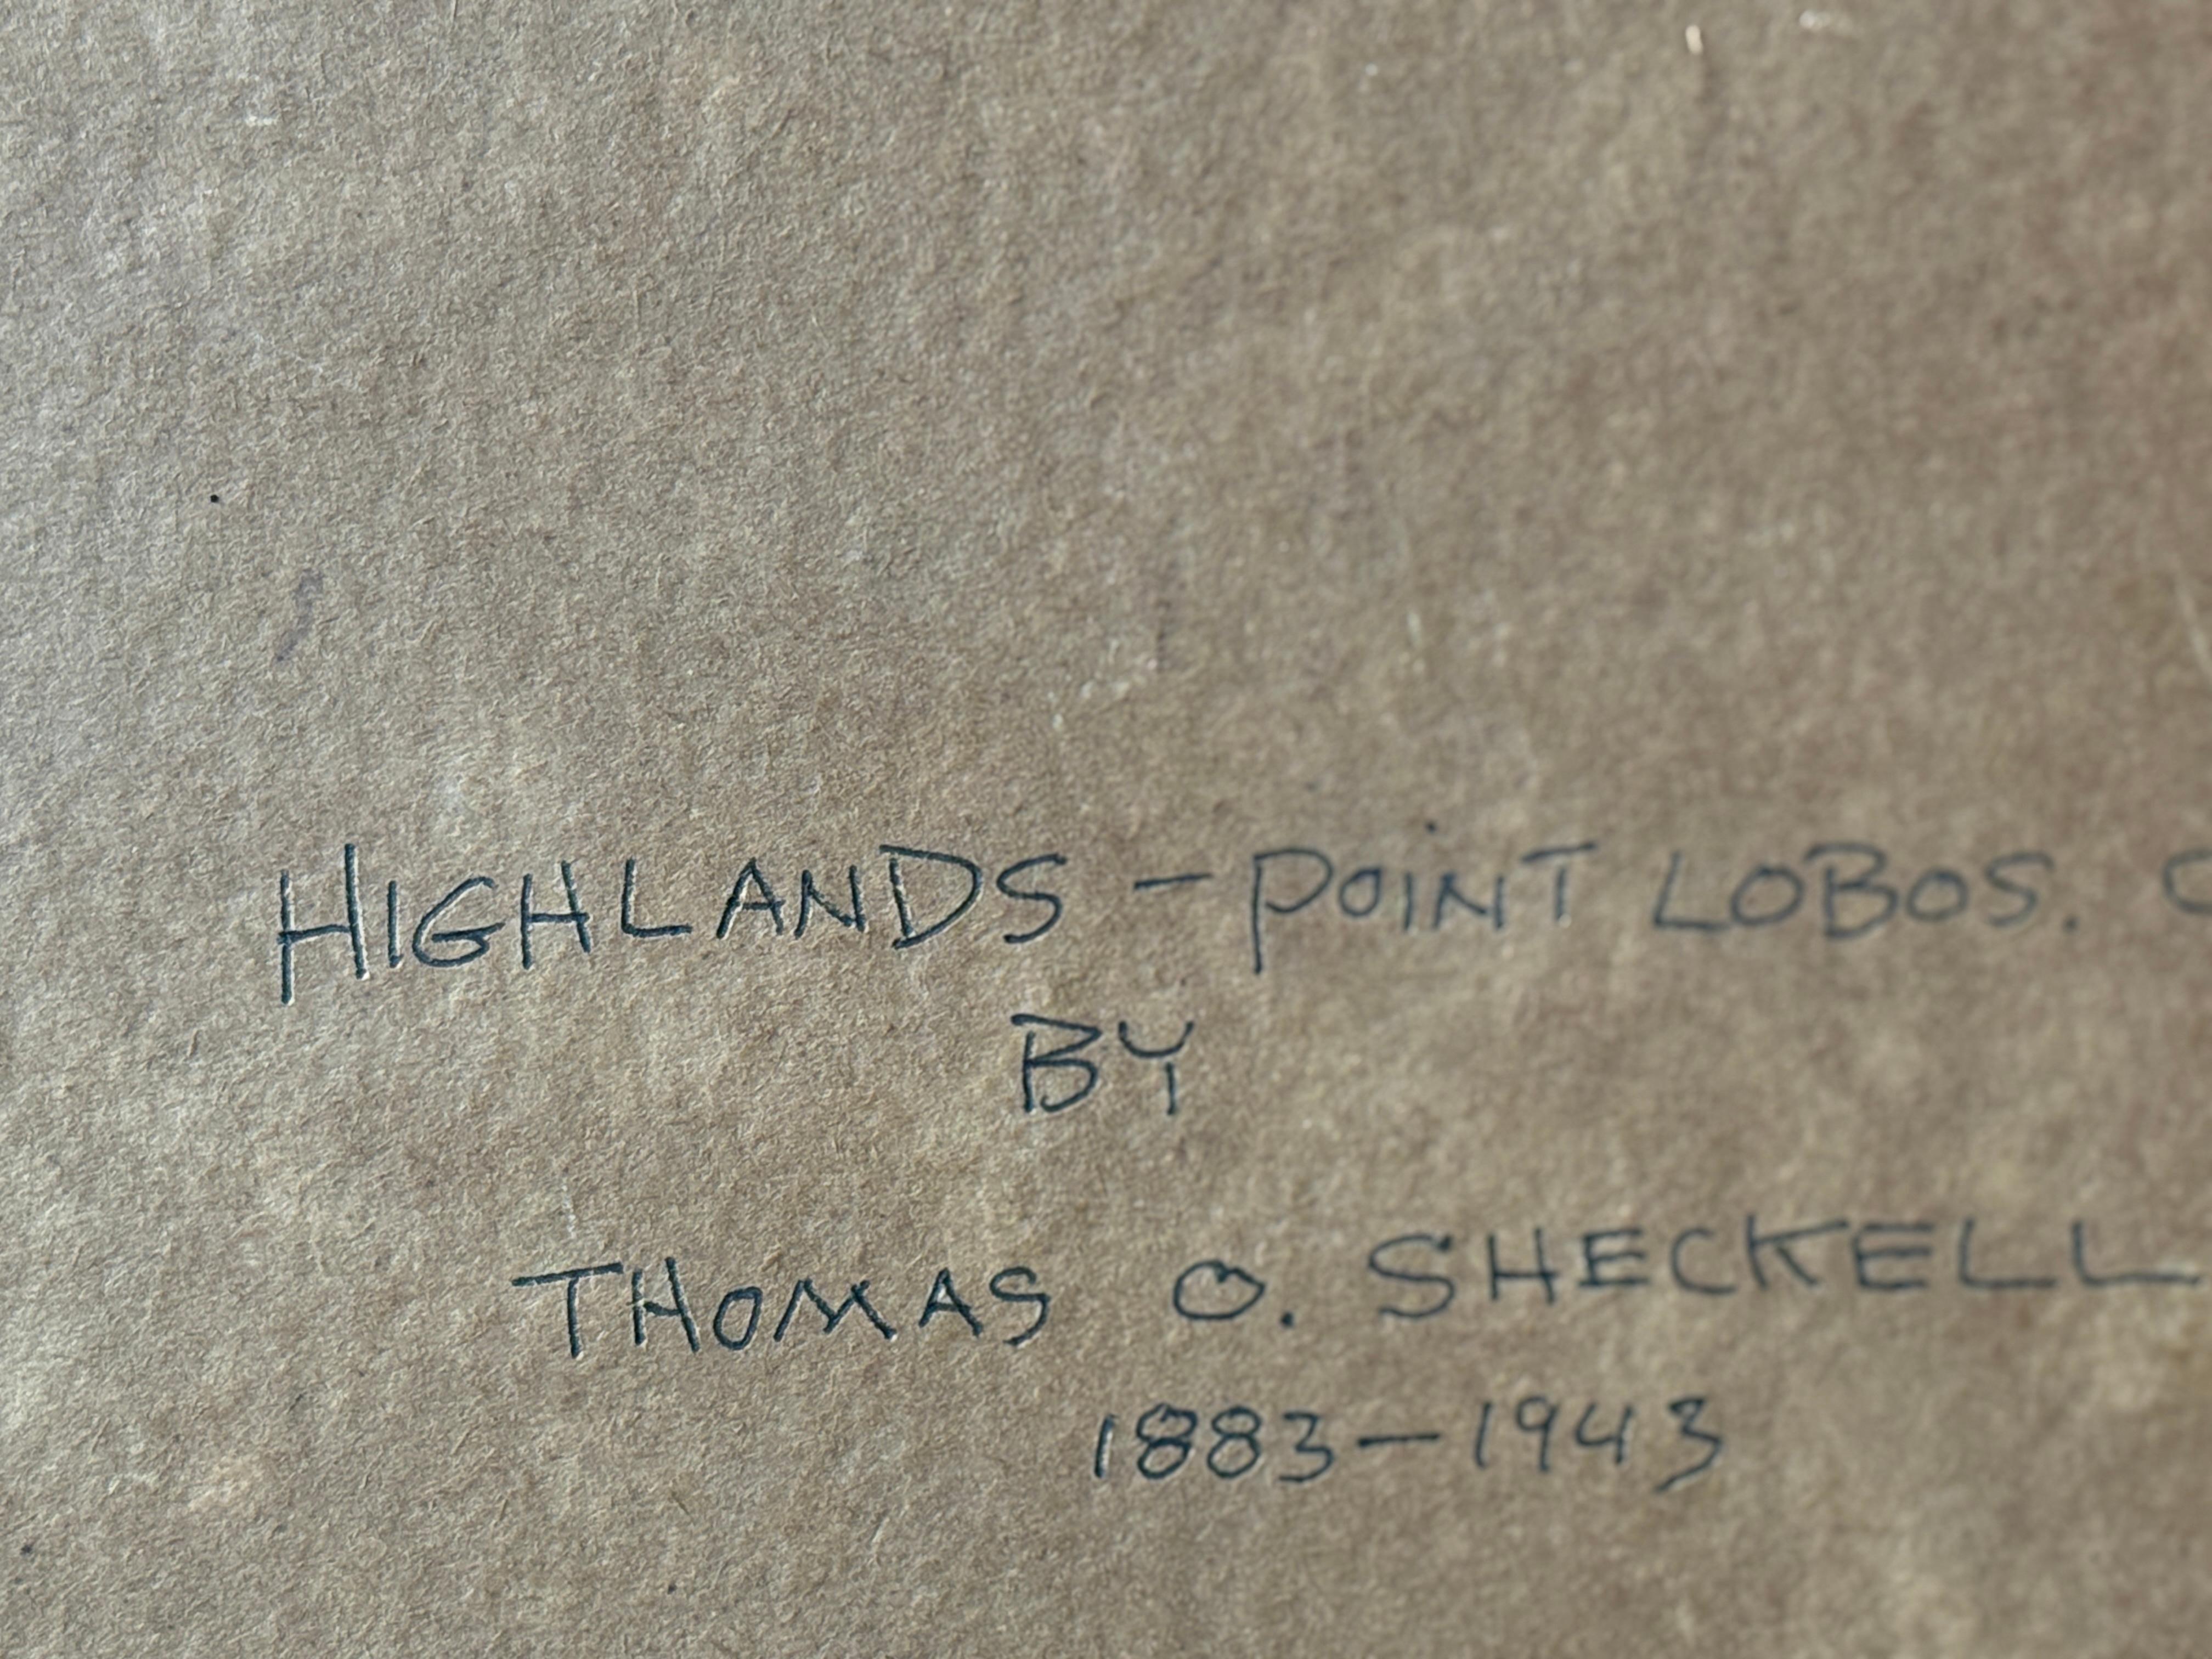 HIGHLANDS - POINT LOBOS.
BY
THOMAS O. SHECKELL
1883-1943